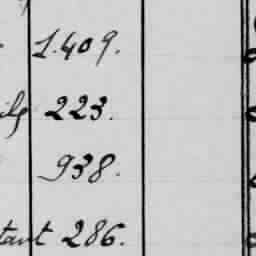 1.409.
223.
938.
tant 286.